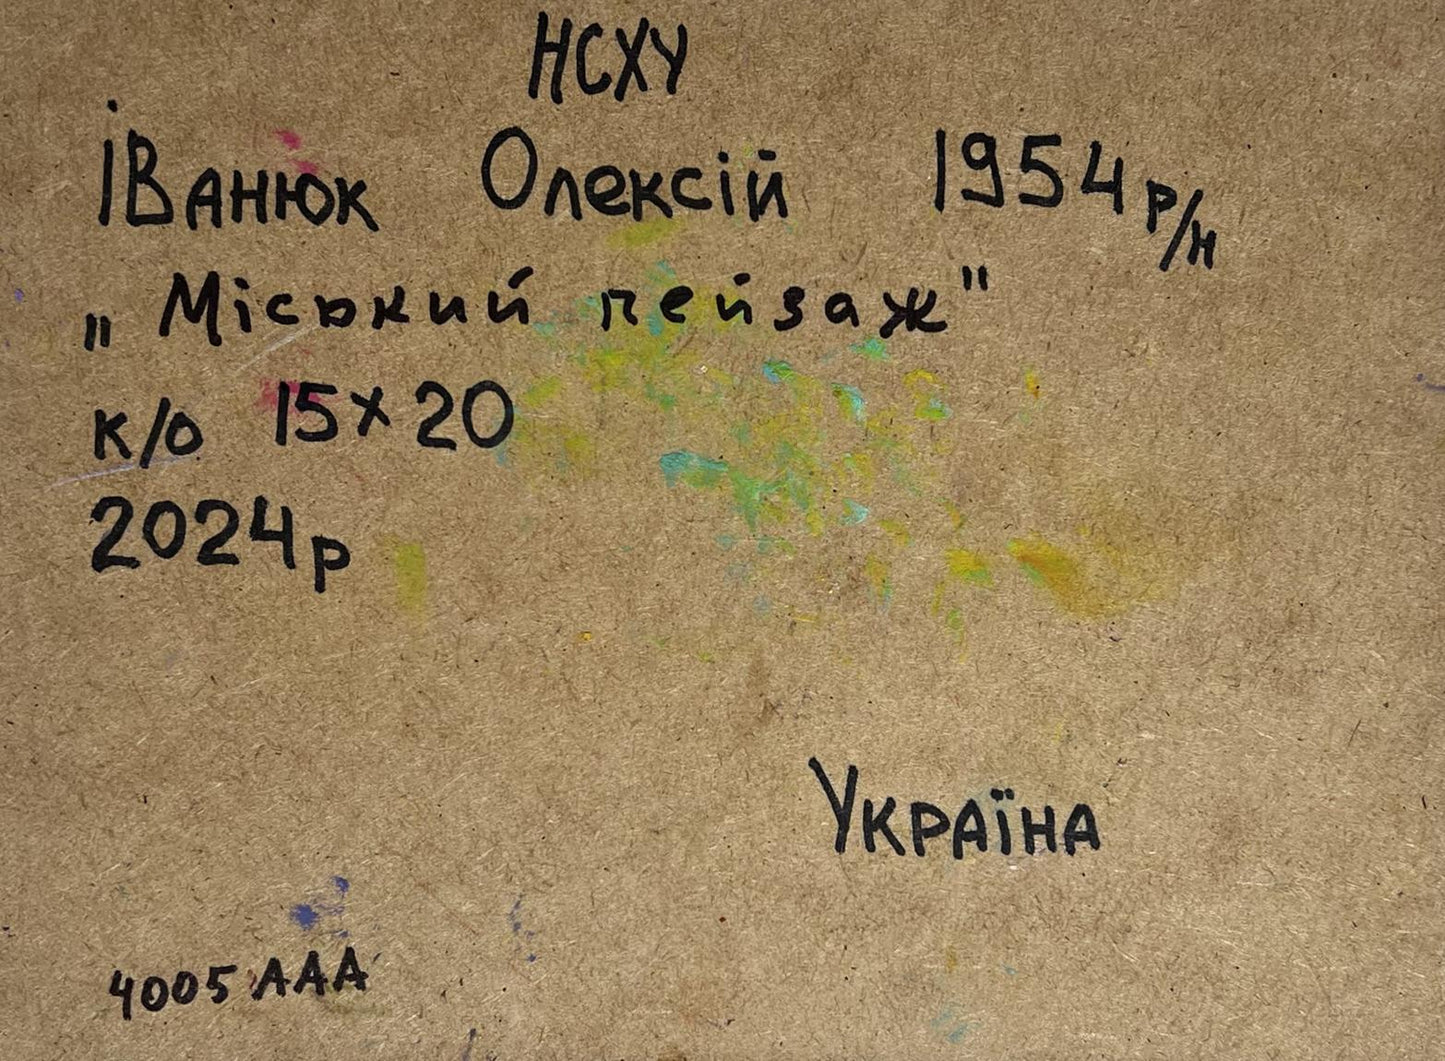 НСХУ
Іванюк Олексій 1954 р/н
„Міський пейзаж"
к/о 15х20
2024р
Україна
4005 ААА